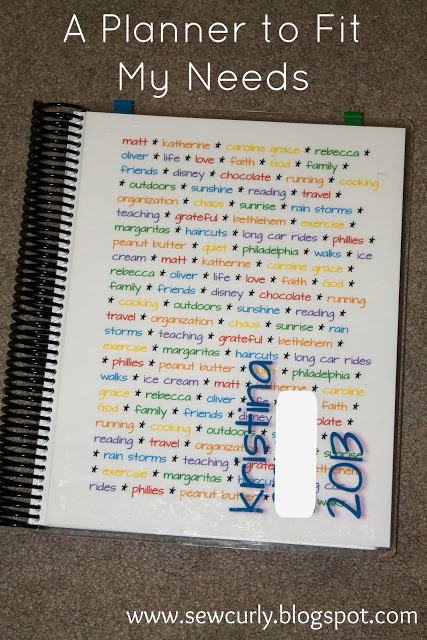 A Planner to Fit
My Needs
matt * katherine * caroline grace * rebecca *
oliver * life * love * faith * God * family *
friends * disney * chocolate * running * cooking
* outdoors * sunshine * reading * travel *
organization * chaos * sunrise * rain storms *
teaching * grateful * bethlehem * exercise *
margaritas * haircuts * long car rides * phillies *
peanut butter * quiet * philadelphia * walks * ice
cream * matt * katherine * caroline grace *
rebecca * oliver * life * love * faith * God *
family * friends * disney * chocolate * running
* cooking * outdoors * sunshine * reading *
travel * organization * chaos * sunrise * rain
storms * teaching * grateful * bethlehem *
exercise * margaritas * haircuts * long car rides
* phillies * peanut butter * philadelphia *
walks * ice cream * matt * caroline
grace * rebecca * oliver * life * faith *
God * family * friends * disney
running * cooking * outdoors
reading * travel * sunrise
* rain storms * teaching * bethlehem
* exercise * margaritas * haircuts
rides * phillies * peanut butter
kristina
2013
www.sewcurly.blogspot.com